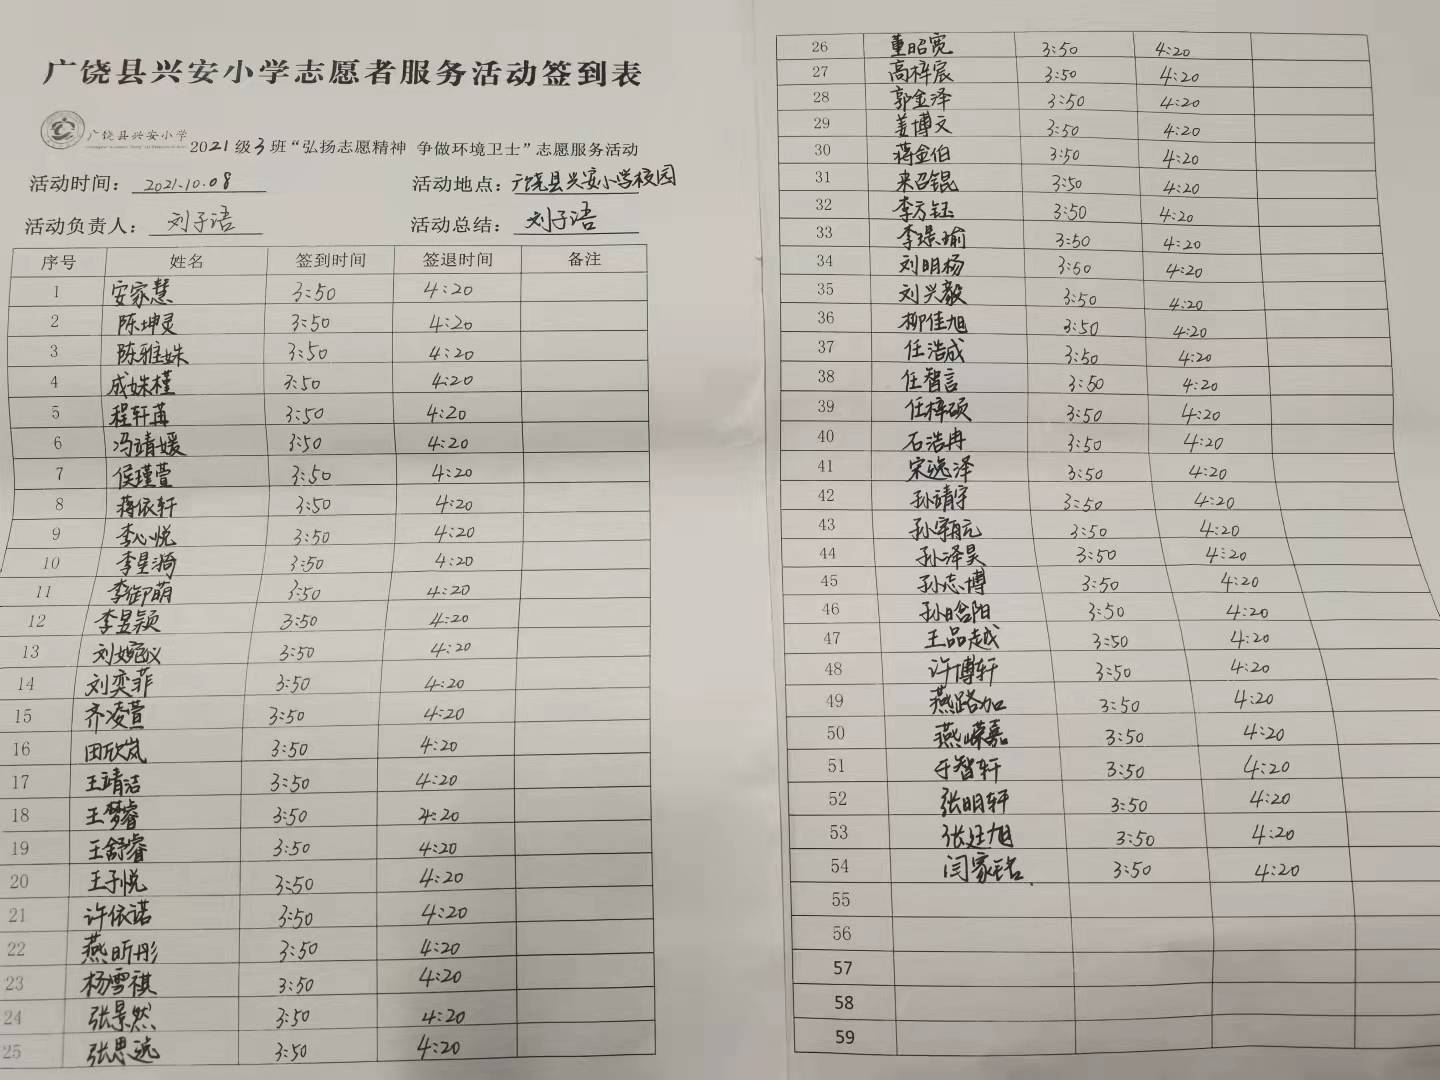 广饶县兴安小学志愿者服务活动签到表
广饶县兴安小学
2021级3班“弘扬志愿精神 争做环境卫士”志愿服务活动
活动时间：2021.10.08 活动地点：广饶县兴安小学校园
活动负责人：刘子语 活动总结：刘子语
序号 姓名 签到时间 签退时间 备注
1 安家慧 3:50 4:20
2 陈坤灵 3:50 4:20
3 陈雅姝 3:50 4:20
4 成姝槿 3:50 4:20
5 程轩苒 3:50 4:20
6 冯靖媛 3:50 4:20
7 侯瑾萱 3:50 4:20
8 蒋依轩 3:50 4:20
9 李心悦 3:50 4:20
10 李星漪 3:50 4:20
11 李御萌 3:50 4:20
12 李昱颖 3:50 4:20
13 刘婉仪 3:50 4:20
14 刘奕菲 3:50 4:20
15 齐凌萱 3:50 4:20
16 田欣岚 3:50 4:20
17 王靖洁 3:50 4:20
18 王梦睿 3:50 4:20
19 王舒睿 3:50 4:20
20 王子悦 3:50 4:20
21 许依诺 3:50 4:20
22 燕昕彤 3:50 4:20
23 杨雪祺 3:50 4:20
24 张景然 3:50 4:20
25 张思远 3:50 4:20
26 董昭宽 3:50 4:20
27 高梓宸 3:50 4:20
28 郭金泽 3:50 4:20
29 姜博文 3:50 4:20
30 蒋金伯 3:50 4:20
31 来召锟 3:50 4:20
32 李方钰 3:50 4:20
33 李璟瑜 3:50 4:20
34 刘明杨 3:50 4:20
35 刘兴毅 3:50 4:20
36 柳佳旭 3:50 4:20
37 任浩成 3:50 4:20
38 任智言 3:50 4:20
39 任梓硕 3:50 4:20
40 石浩冉 3:50 4:20
41 宋逸泽 3:50 4:20
42 孙靖宇 3:50 4:20
43 3:50 4:20
44 孙泽昊 3:50 4:20
45 孙志博 3:50 4:20
46 孙晗阳 3:50 4:20
47 王品越 3:50 4:20
48 许博轩 3:50 4:20
49 燕路加 3:50 4:20
50 燕嵘嘉 3:50 4:20
51 于智轩 3:50 4:20
52 张明轩 3:50 4:20
53 张廷旭 3:50 4:20
54 闫家铭 3:50 4:20
55
56
57
58
59